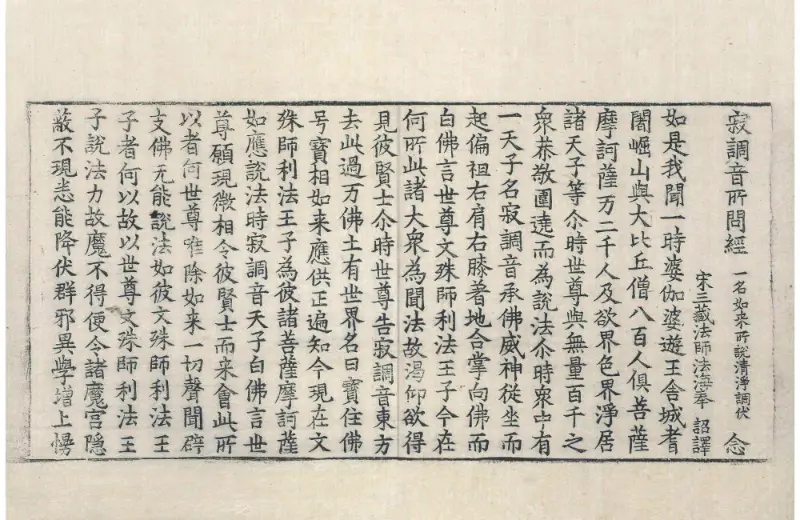 寂調音所問經 一名如来所說清淨調伏 念
宋三藏法師法海奉 詔譯
如是我聞一時婆伽婆遊王舍城耆
闍崛山與大比丘僧八百人俱菩薩
摩訶薩万二千人及欲界色界淨居
諸天子等尒時世尊與無量百千之
衆恭敬圍遶而為說法尒時衆中有
一天子名寂調音承佛威神從坐而
起偏袒右肩右膝著地合掌向佛而
白佛言世尊文殊師利法王子今在
何所此諸大衆為聞法故渴仰欲得
見彼賢士尒時世尊告寂調音東方
去此過万佛土有世界名曰寶住佛
号寶相如来應供正遍知今現在文
殊師利法王子為彼諸菩薩摩訶薩
如應說法時寂調音天子白佛言世
尊願現微相令彼賢士而来會此所
以者何世尊唯除如来一切聲聞辟
支佛无能說法如彼文殊師利法王
子者何以故以世尊文殊師利法王
子說法力故魔不得便令諸魔宮隱
蔽不現悉能降伏群邪異學增上愣